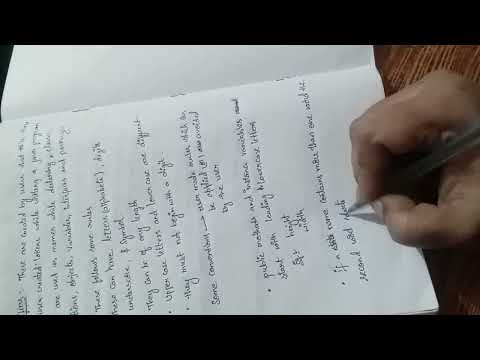 These are created by user that is
user created tokens while writing a java program
are used as names while declaring a class
objects, variables, interfaces and packages
These follows some rules
these can have letters (alphabets), digits
underscore, $ symbol
They can be of any length
• Upper case letters and lower case are different
• they must not begin with a digit.
Some conventions → user made rules which can
be applied (or) avoided
by the user
• public methods and instance variables
start with leading lowercase letters
Eg:- height
width
• if a name contains more than one word the
second word